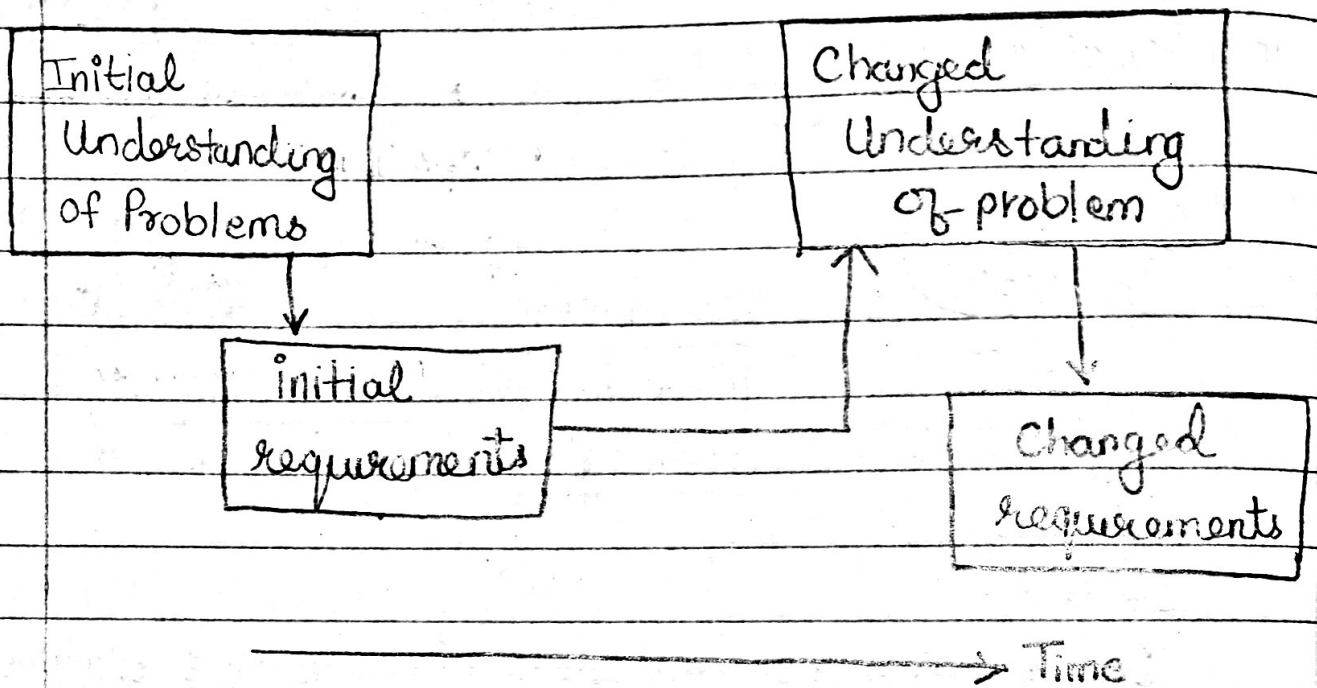 Initial
Understanding
of Problems
Changed
Understanding
of problem
initial
requirements
Changed
requirements
Time